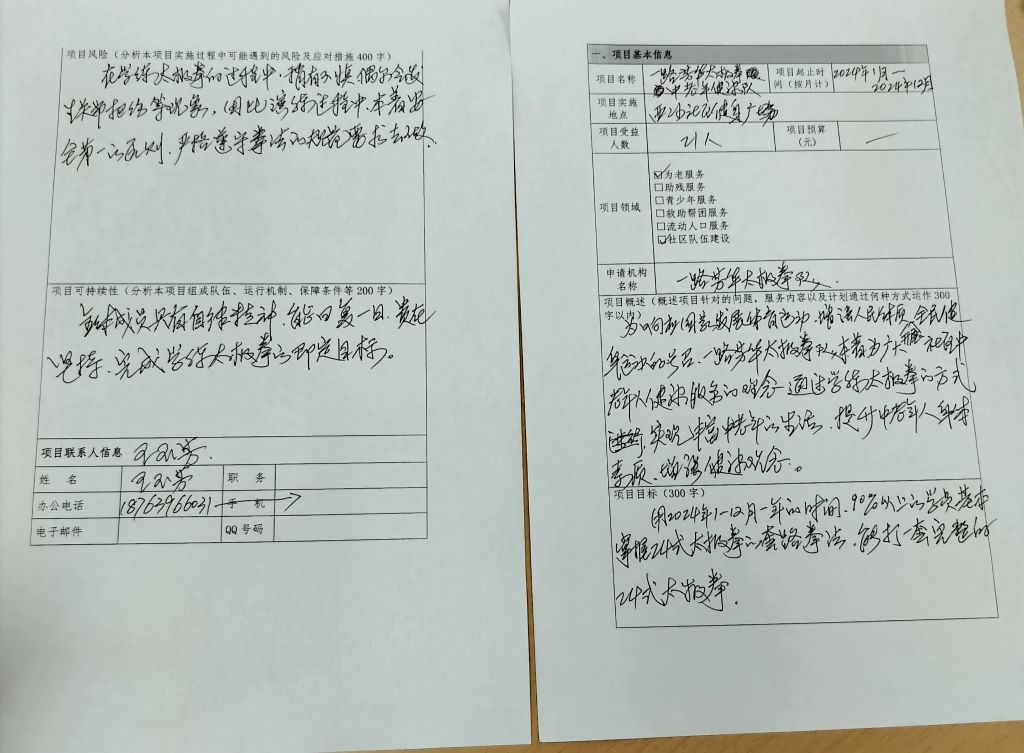 项目风险（分析本项目实施过程中可能遇到的风险及应对措施400字）
在学练太极拳的过程中，稍有不慎偶尔会发
生失常扭伤等现象，因此演练过程中，本着安
全第一的原则，严格遵守拳法的规范要求去做。
项目可持续性（分析本项目组成队伍、运行机制、保障条件等200字）
成员具有自律精神，能日复一日，贵在
坚持，完成学练太极拳的即定目标。
项目联系人信息
姓 名
职 务
办公电话 18763966031 手 机
电子邮件 QQ号码
一、项目基本信息
项目名称 一路芳华太极拳
中老年健保队
项目起止时
间（按月计） 2024年1月—
2024年12月
项目实施
地点 社区健身广场
项目受益
人数 21人 项目预算
（元） —
项目领域
☑为老服务
□助残服务
□青少年服务
□救助帮困服务
□流动人口服务
☑社区队伍建设
申请机构
名称 一路芳华太极拳队
项目概述（概述项目针对的问题，服务内容以及计划通过何种方式运作300
字以内）
为响应国家发展体育运动，增强人民体质，全民健
身的号召，一路芳华太极拳队，本着为广大社区中
老年人健康服务的理念，通过学练太极拳的方式
实现丰富中老年的生活，提升中老年人身体
素质，增强健康观念。
项目目标（300字）
用2024年1-12月一年的时间，90%以上的学员基本
掌握24式太极拳的套路拳法，能打一套完整的
24式太极拳。